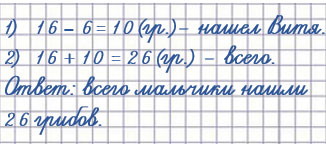 1) 16 - 6 = 10 (гр.) - нашел Витя.
2) 16 + 10 = 26 (гр.) - всего.
Ответ: всего мальчики нашли
26 грибов.